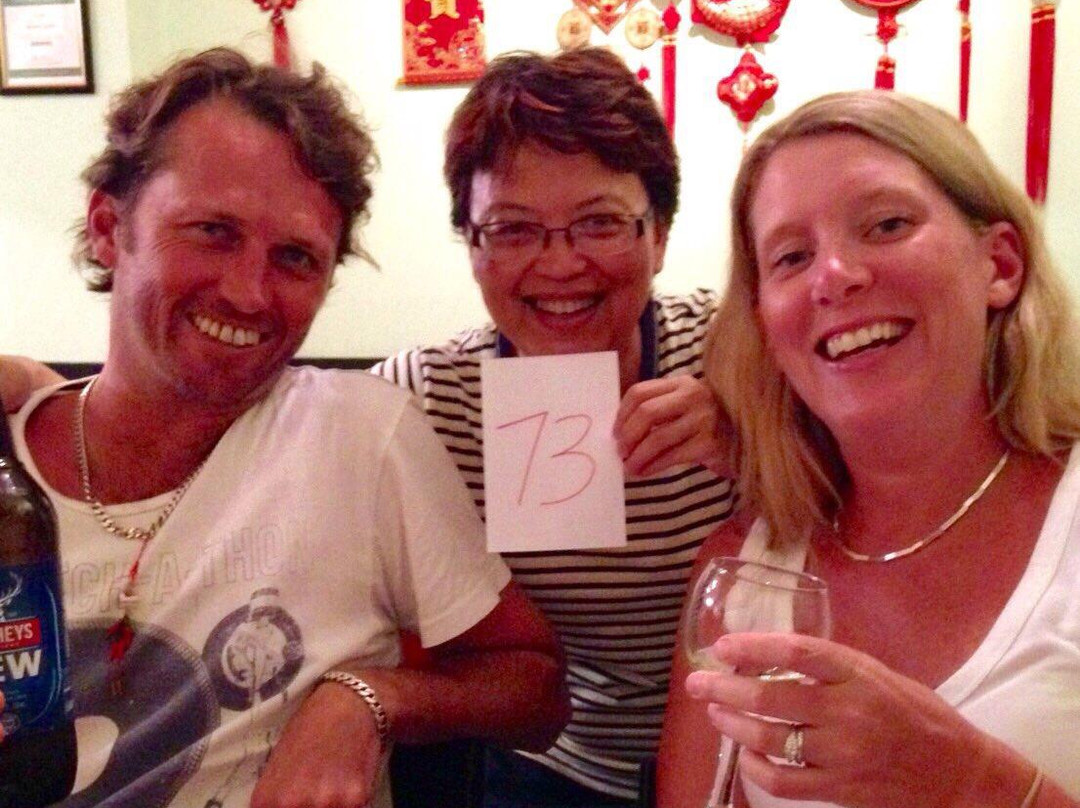 73
CH-A-THON
HEYS
EW